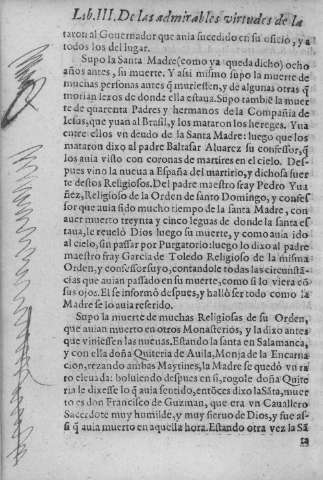 Lib.III. De las admirables virtudes de la
taron al Governador que auia sucedido en su oficio, y a
todos los del lugar.
Supo la Santa Madre (como ya queda dicho) ocho
años antes, su muerte. Y assi mismo supo la muerte de
muchas personas antes q̃ muriessen, y de algunas otras q̃
morian lexos de donde ella estaua. Supo tambiẽ la muer
te de quarenta Padres y hermanos de la Compañia de
Iesus, que yuan al Brasil, y los mataron los hereges. Yua
entre ellos vn deudo de la Santa Madre: luego que los
mataron dixo al padre Baltasar Aluarez su confessor, q̃
los auia visto con coronas de martires en el cielo. Des-
pues vino la nueua a España del martirio, y dichosa suer
te destos Religiosos. Del padre maestro fray Pedro Yua
ñez, Religioso de la Orden de santo Domingo, y confes-
sor que auia sido mucho tiempo de la santa Madre, con
auer muerto treynta y cinco leguas de donde la santa es
taua, le reuelò Dios luego su muerte, y como auia ido
al cielo, sin passar por Purgatorio: luego lo dixo al padre
maestro fray Garcia de Toledo Religioso de la misma
Orden, y confessor suyo, contandole todas las circunstã-
cias que auian passado en su muerte, como si lo viera cõ
sus ojos. El se informò despues, y hallò ser todo como la
Madre se lo auia referido.
Supo la muerte de muchas Religiosas de su Orden,
que auian muerto en otros Monasterios, y la dixo antes
que viniessen las nueuas. Estando la santa en Salamanca,
y con ella doña Quiteria de Auila, Monja de la Encarna
cion, rezando ambas Maytines, la Madre se quedò vn ra
ro eleuada: boluiendo despues en si, rogole doña Quite
ria le dixesse lo q̃ auia sentido, entõces dixo la Sãta, muer
to es don Francisco de Guzman, que era vn Cauallero
Sacerdote muy humilde, y muy sieruo de Dios, y fue as-
si q̃ auia muerto en aquella hora. Estando otra vez la Sã
ta